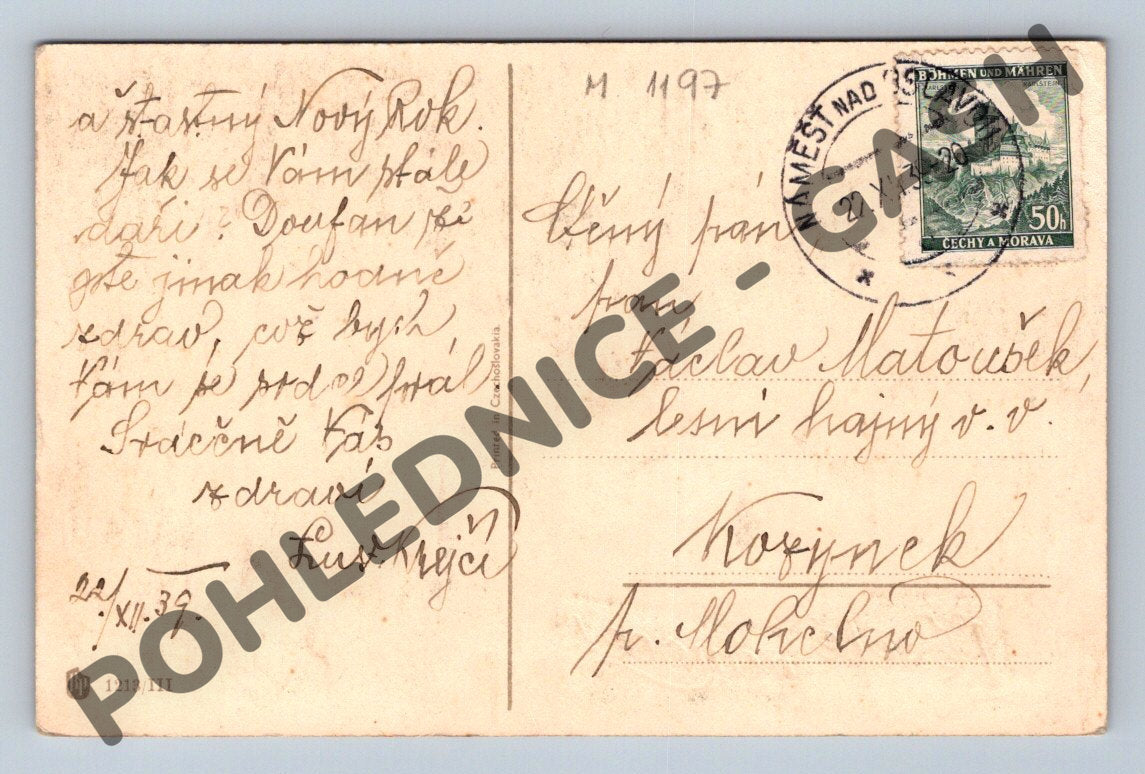 M 1197
a šťastný Nový Rok.
Jak se Vám stále
daří? Doufám že
jste jinak hodně
zdráv, což bych
Vám ze srdce přál
Srdečně Vás
zdraví
Krejčí
22/XII.39.
1213/III
Printed in Czechoslovakia
NÁMĚŠŤ NAD OSLAVOU
22 XII 39 -20
BÖHMEN UND MÄHREN
KARLSTEIN
50h
ČECHY A MORAVA
Ctěný pán
pan
Václav Matoušek,
lesní hajný v. v.
Kozynek
p. Mohelno
POHLEDNICE - GASH